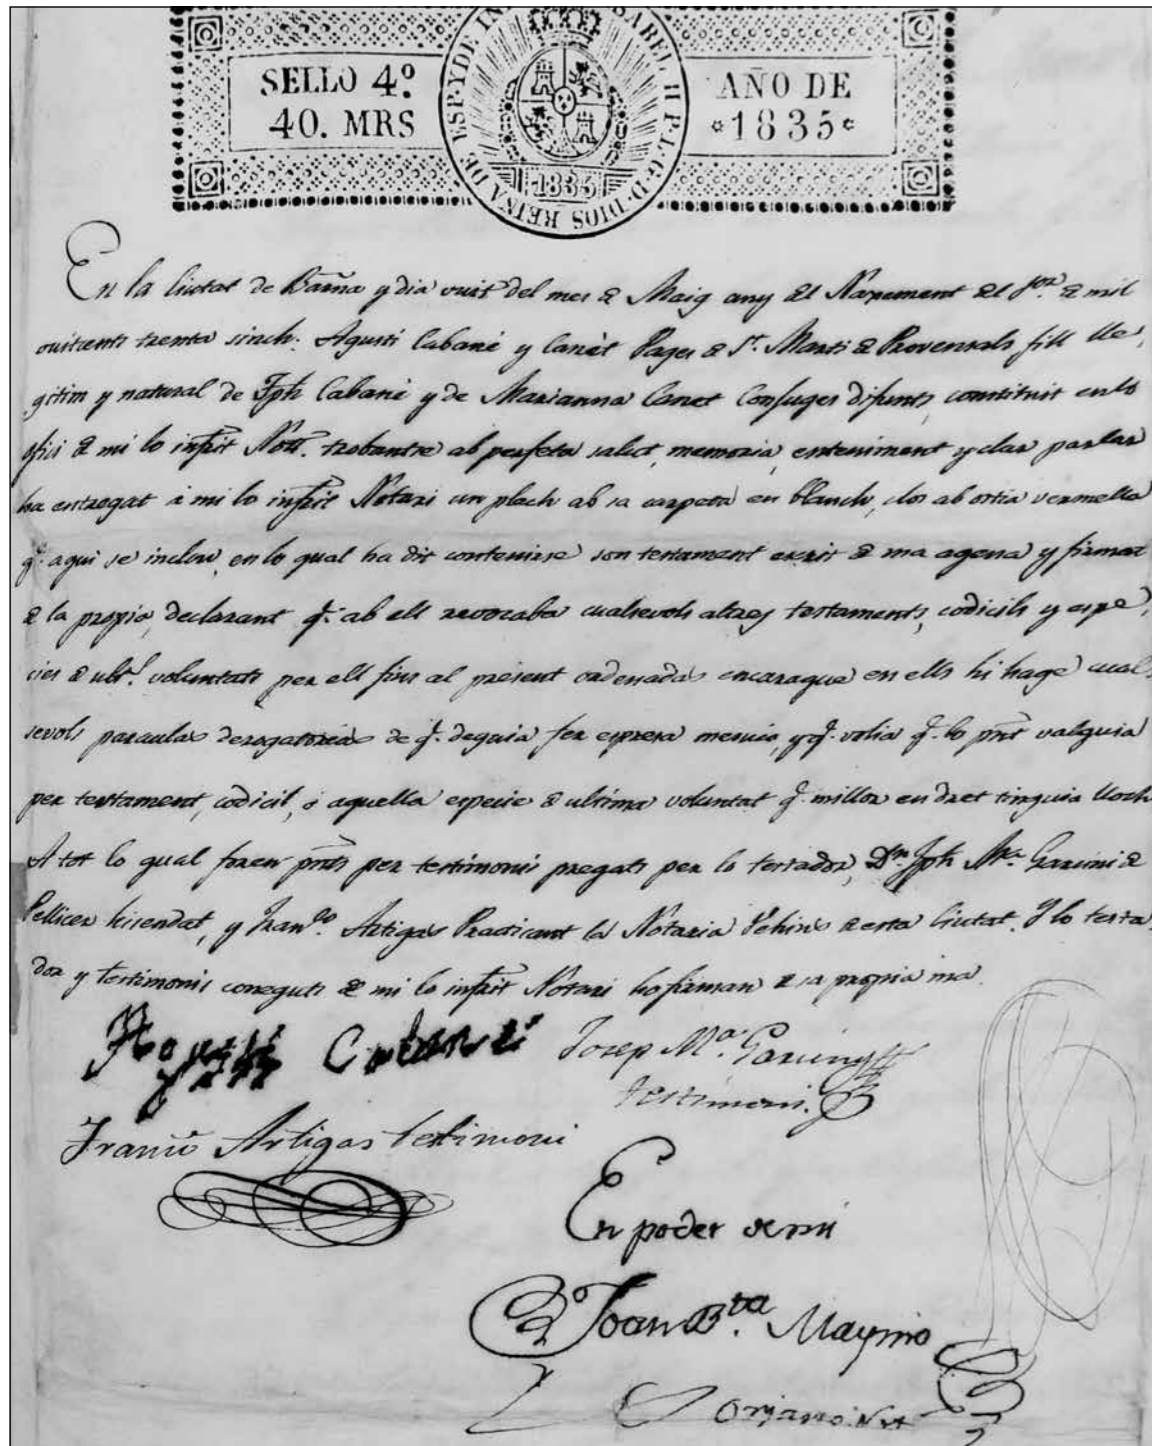 SELLO 4º
40. MRS
AÑO DE
1835
ISABEL II P. L. G. D. DIOS REINA DE ESP. Y DE IN
1835
En la Ciutat de Barña y dia vuit del mes de Maig any del Naxement del Sor. de mil
vuitcents trenta sinch: Agustí Cabané y Canèt Pages de St. Martí de Provensals fill lle,
gitim y natural de Jph Cabané y de Marianna Canet Conjuges difunts, constituit en lo
ofici de mi lo infrit Nott. trobantse ab perfeta salut, memoria, enteniment y clar parlar
ha entregat á mi lo infrit Notari un plech ab sa carpeta en blanch, clos ab ostia vermella
q. aqui se inclou, en lo qual ha dit contenirse son testament escrit de ma agena y firmat
de la propia, declarant q. ab ell revocaba cualsevols altres testaments, codicils y espe,
cies de ult. voluntats per ell fins al present ordenadas encaraque en ells hi hage cual,
sevols paraulas derogatorias de q. deguia fer expresa mencio, y q. volia q. lo prnt valguia
per testament, codicil, ó aquella especie de ultima voluntat q. millor en dret tinguia lloch
A tot lo qual foren prnts per testimonis pregats per lo testador, Dn. Jph Ma. Garcini de
Pellicer hisendat, y Franco. Artigas Practicant la Notaria Vehins de esta Ciutat. Y lo testa,
dor y testimonis coneguts de mi lo infrit Notari ho firman de sa propria ma.
Agustí Cabané Josep Ma. Garciny
testimoni.
Artigas testimoni
En poder de mi
Joan Bta. Maymó